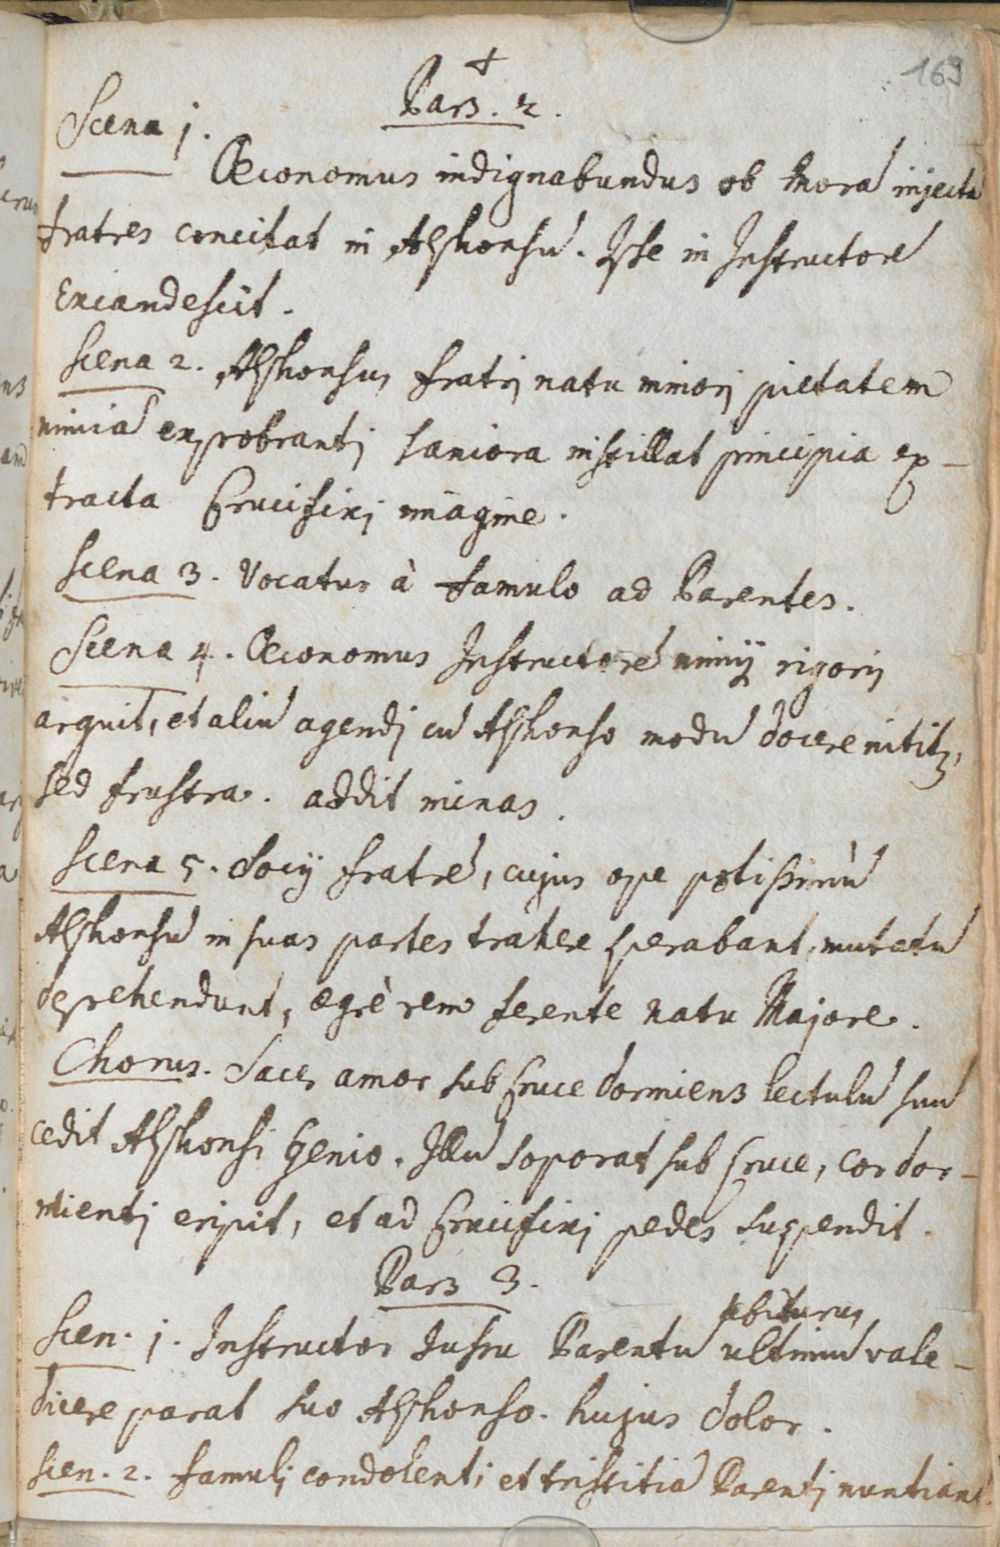 169
+
Pars. 2.
Scena j.
Œconomus indignabundus ob morã injectã
fratres concitat in Alphonsũ. Iste in Instructorẽ
Excandescit.
Scena 2. Alphonsus fratrj natu minorj pietatem
nimiã exprobrantj saniora instillat principia ex-
tracta Crucifixj imagine.
Scena 3. Vocatur à famulo ad Parentes.
Scena 4. Œconomus Instructorẽ nimij rigoris
arguit, et aliũ agendj cũ Alphonso modũ docere nititr,
sed frustra. addit minas.
Scena 5. Socij fratrẽ, cujus ope potissimũ
Alphonsũ in suas partes trahere sperabant, mutatũ
deprehendunt, ægrè rem ferente natu Majore.
Chorus. Sacer amor sub Cruce dormiens lectulũ suũ
cedit Alphonsi Genio. Illũ soporat sub Cruce, cor dor-
mientj eripit, et ad Crucifixj pedes suspendit.
Pars 3.
abiturus
Scen. j. Instructor Jussu Parentũ ultimũ vale-
dicere parat suo Alphonso. hujus dolor.
Scen. 2. famulj condolenti et tristitiã Parentj nuntiant